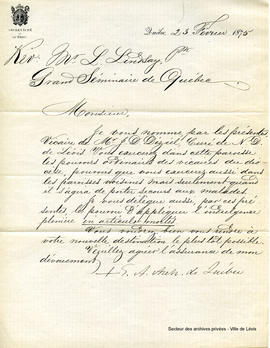 ARCHEVÊCHÉ
DE
QUÉBEC
Québec 23 Février 1875
Rév. Mr. L. Lindsay, Ptre
Grand Séminaire de Québec
Monsieur,
Je vous nomme par les présentes,
Vicaire de Mr. J. D. Déziel, Curé de N. D.
de Lévis. Vous aurez dans cette paroisse
les pouvoirs ordinaires des vicaires du dio-
cèse, pouvoirs que vous aurez aussi dans
les paroisses voisines mais seulement quand
il s'agira de porter secours aux malades.
Je vous délègue aussi, par ces pré-
sentes, le pouvoir d'appliquer l'indulgence
plénière in articulo mortis.
Vous voudrez bien vous rendre à
votre nouvelle destination le plus tôt possible.
Veuillez agréer l'assurance de mon
dévouement
† E. A. Arch. de Québec
Secteur des archives privées - Ville de Lévis